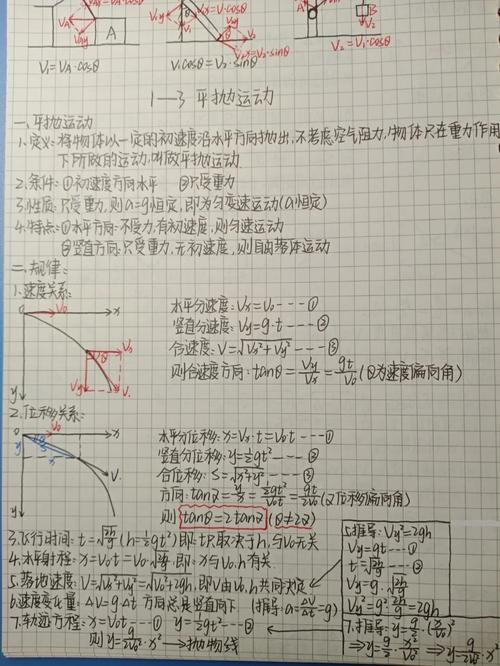 V₁=V_A·cosθ
V₁cosθ=V₂·sinθ
V₂=V₁·cosθ
1—3 平抛运动
一、平抛运动
1.定义:将物体以一定的初速度沿水平方向抛出,不考虑空气阻力,物体只在重力作用
下所做的运动,叫做平抛运动.
2.条件:①初速度方向水平 ②只受重力
3.性质:只受重力,则a=g恒定,即为匀变速运动(a恒定)
4.特点:①水平方向:不受力,有初速度,则匀速运动
②竖直方向:只受重力,无初速度,则自由落体运动
二、规律:
1.速度关系:
水平分速度:Vx=V₀---①
竖直分速度:Vy=g·t---②
合速度:V=√(Vx²+Vy²)---③
则合速度方向:tanθ=Vy/Vx=gt/V₀(θ为速度偏向角)
2.位移关系:
水平分位移:x=Vx·t=V₀t---①
竖直分位移:y=½gt²---②
合位移:S=√(x²+y²)---③
方向:tanα=y/x=½gt²/V₀t=gt/2V₀(α位移偏向角)
则 tanθ=2tanα (θ≠2α)
3.飞行时间:t=√(2h/g) (h=½gt²)即:t只取决于h,与V₀无关
4.水平射程:x=V₀t=V₀√(2h/g),即:x与V₀,h有关
5.落地速度:V=√(Vx²+Vy²)=√(V₀²+2gh),即V由V₀,h共同决定
6.速度变化量:ΔV=g·Δt 方向总是竖直向下 (推导:a=ΔV/Δt=g)
7.轨迹方程:x=V₀t---① y=½gt²---②
则y=g/2V₀²·x² →抛物线
5.推导:Vy²=2gh
Vy=gt---①
t=√(2h/g)---②
Vy=g·√(2h/g)
Vy²=g²·2h/g=2gh
7.推导:y=g/2·(x/V₀)²
⇒y=g/2·x²/V₀² ⇒y=g/2V₀²·x²